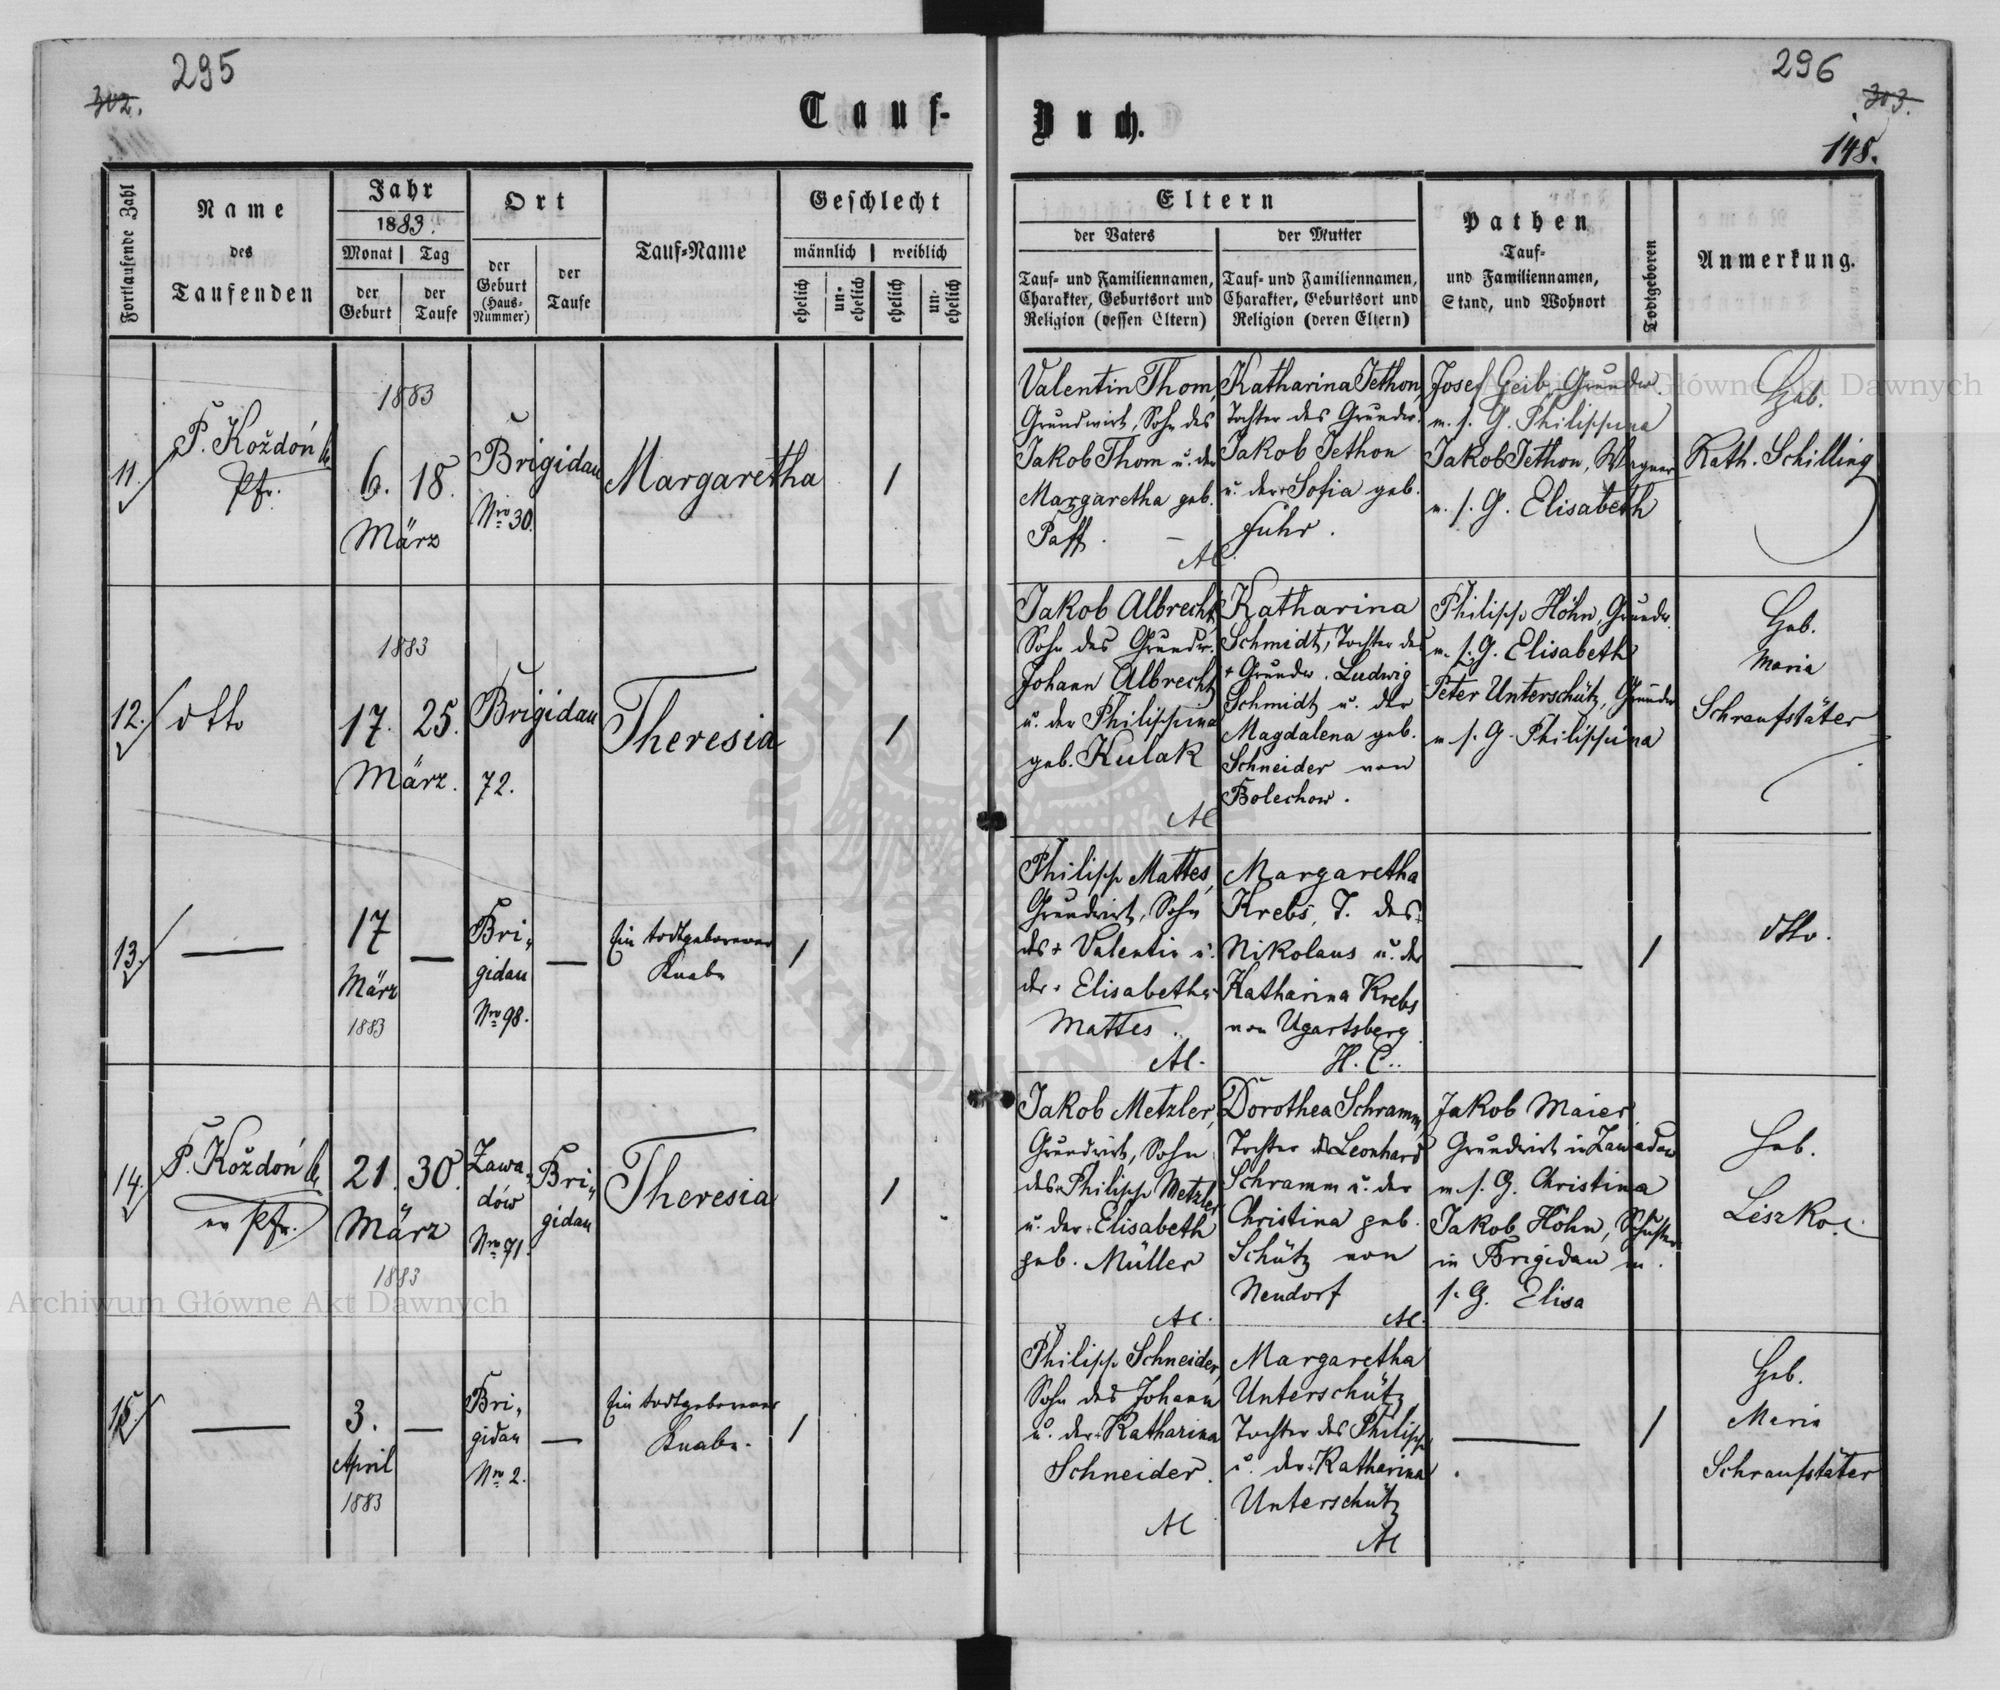 295
302.
Tauf-
Fortlaufende Zahl
Name
des
Taufenden
Jahr
1883.
Monat
Tag
der
Geburt
der
Taufe
Ort
der
Geburt
(Haus-
Nummer)
der
Taufe
Tauf-Name
Geschlecht
männlich
weiblich
ehelich
un-
ehelich
ehelich
un-
ehelich
11.
P. Koždoń
Pfr.
1883
6. 18.
März
Brigidau
Nro 30.
Margaretha
1
12.
dtto
1883
17. 25.
März.
Brigidau
72.
Theresia
1
13.
17
März
1883
Bri-
gidau
Nro 98.
Ein todtgeborener
Knabe
1
14.
P. Koždoń
ev Pfr.
21. 30.
März
1883
Zawa-
dów
Nro 71.
Bri-
gidau
Theresia
1
15.
3.
April
1883
Bri-
gidau
Nro 2.
Ein todtgeborener
Knabe.
1
296
303.
148.
Buch.
Eltern
der Vaters
der Mutter
Tauf- und Familiennamen,
Charakter, Geburtsort und
Religion (dessen Eltern)
Tauf- und Familiennamen,
Charakter, Geburtsort und
Religion (deren Eltern)
Pathen
Tauf-
und Familiennamen,
Stand, und Wohnort
Todtgeboren
Anmerkung.
Valentin Thom,
Grundwirt, Sohn des
Jakob Thom u. der
Margaretha geb.
Paff.
AC.
Katharina Jethon,
Tochter des Grundw.
Jakob Jethon
u. der Sofia geb.
Fuhr.
Josef Geib, Grundw.
m. s. G. Philippina
Jakob Jethon, Wagner
m. s. G. Elisabeth
Heb.
Kath. Schilling
Jakob Albrecht,
Sohn des Grundw.
Johann Albrecht
u. der Philippina
geb. Kulak
AC
Katharina
Schmidt, Tochter des
+ Grundw. Ludwig
Schmidt u. der
Magdalena geb.
Schneider von
Bolechow.
Philipp Höhn, Grundw.
m. s. G. Elisabeth
Peter Unterschütz, Grundw
m. s. G. Philippina
Heb.
Maria
Schraufstäter
Philipp Mattes,
Grundwirt, Sohn
des + Valentin u.
der + Elisabetha
Mattes.
AC.
Margaretha
Krebs, T. des
Nikolaus u. der
Katharina Krebs
von Ugartsberg
H. C.
1
dtto.
Jakob Metzler,
Grundwirt, Sohn
des + Philipp Metzler
u. der + Elisabeth
geb. Müller
AC.
Dorothea Schramm,
Tochter des Leonhard
Schramm u. der
Christina geb.
Schütz von
Neudorf
AC.
Jakob Maier,
Grundwirt in Zawadow
m. s. G. Christina
Jakob Höhn, Schuster
in Brigidau m.
s. G. Elisa
Heb.
Leszko.
Philipp Schneider,
Sohn des Johann
u. der + Katharina
Schneider.
AC
Margaretha
Unterschütz,
Tochter des Philipp
u. der + Katharina
Unterschütz
AC
1
Heb.
Maria
Schraufstäter
Archiwum Główne Akt Dawnych
Archiwum Główne Akt Dawnych